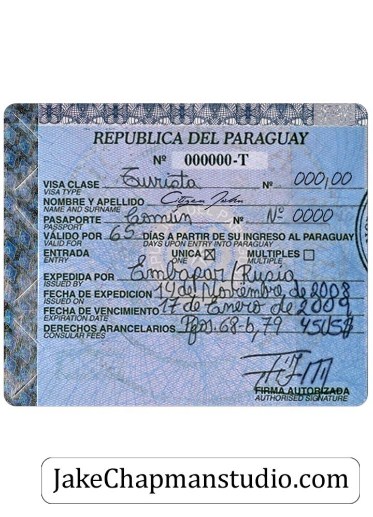 REPUBLICA DEL PARAGUAY
Nº 000000-T
VISA CLASE Turista Nº 000,00
VISA TYPE
NOMBRE Y APELLIDO
NAME AND SURNAME
PASAPORTE Común Nº Nº 0000
PASSPORT
VÁLIDO POR 65 DÍAS A PARTIR DE SU INGRESO AL PARAGUAY
VALID FOR DAYS UPON ENTRY INTO PARAGUAY
ENTRADA UNICA ☒ MULTIPLES ☐
ENTRY ONE MULTIPLE
EXPEDIDA POR Embapar/Rusia
ISSUED BY
FECHA DE EXPEDICION 14 de Noviembre de 2008
ISSUED ON
FECHA DE VENCIMIENTO 17 de Enero de 2009
EXPIRATION DATE
DERECHOS ARANCELARIOS 45US$
CONSULAR FEES
FIRMA AUTORIZADA
AUTHORISED SIGNATURE
JakeChapmanstudio.com